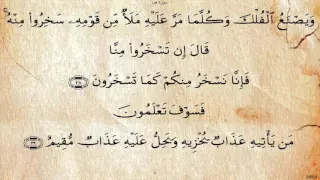 وَيَصْنَعُ ٱلْفُلْكَ وَكُلَّمَا مَرَّ عَلَيْهِ مَلَأٌ مِّن قَوْمِهِۦ سَخِرُوا۟ مِنْهُ ۚ
قَالَ إِن تَسْخَرُوا۟ مِنَّا
فَإِنَّا نَسْخَرُ مِنكُمْ كَمَا تَسْخَرُونَ ﴿٣٨﴾
فَسَوْفَ تَعْلَمُونَ
مَن يَأْتِيهِ عَذَابٌ يُخْزِيهِ وَيَحِلُّ عَلَيْهِ عَذَابٌ مُّقِيمٌ ﴿٣٩﴾